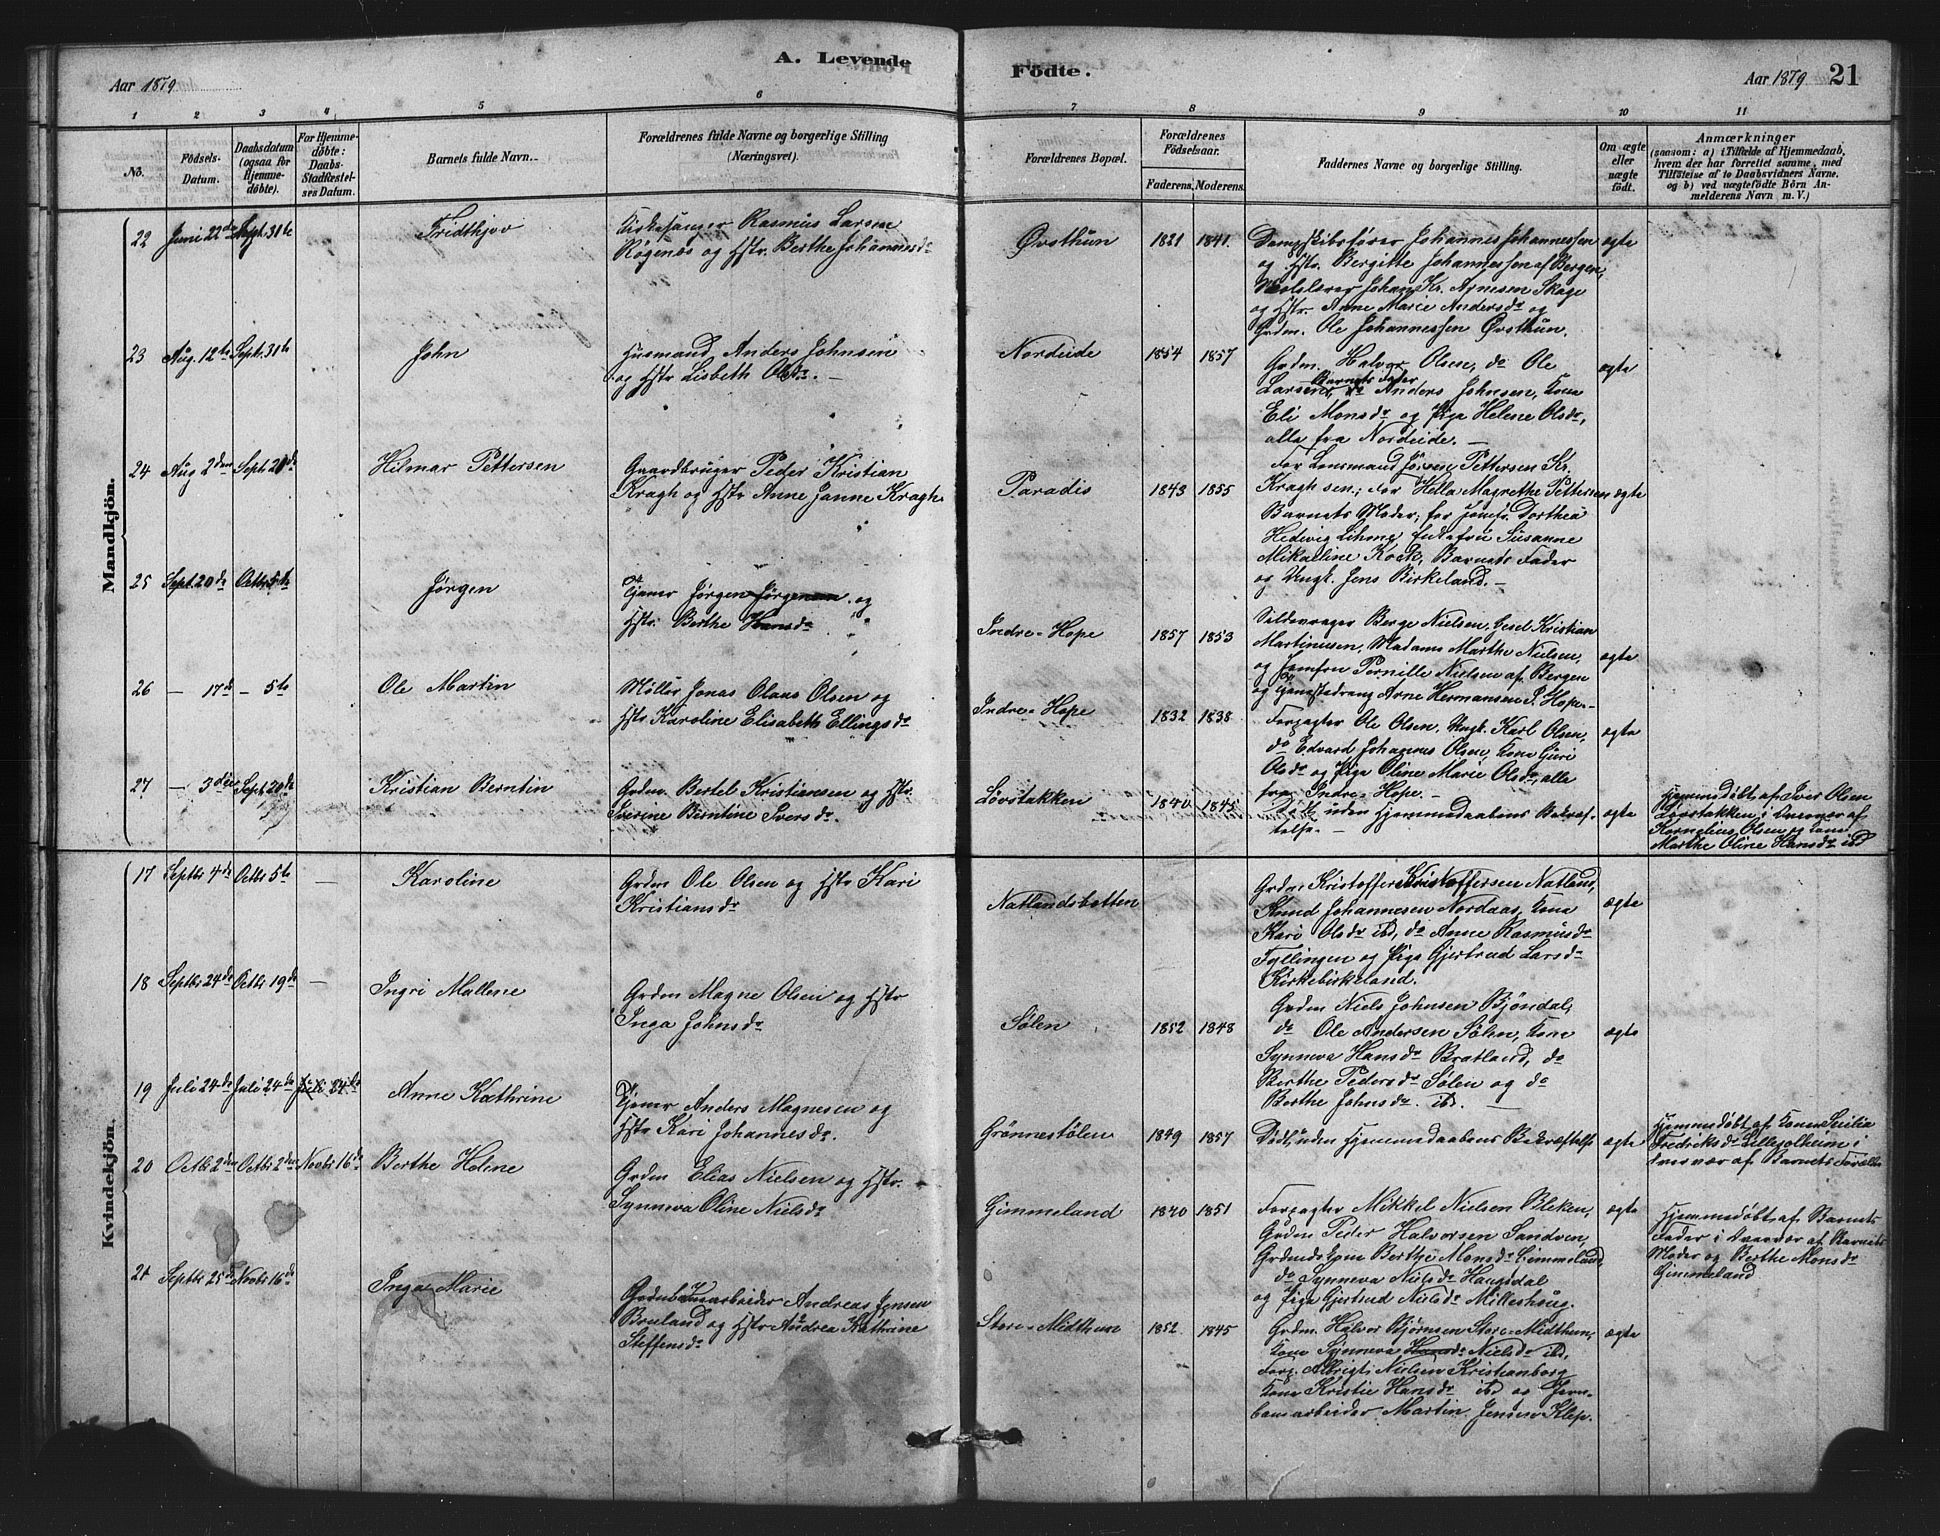 Aar 1879
A. Levende
Födte.
Aar 1879 21
1 2 3 4 5 6 7 8 9 10 11
No.
Födsels-
Datum.
Daabsdatum
(ogsaa for
Hjemme-
døbte).
For Hjemme-
døbte:
Daabs-
Stadfestel-
ses Datum.
Barnets fulde Navn.
Forældrenes fulde Navne og borgerlige Stilling
(Næringsvei).
Forældrenes Bopæl.
Forældrenes
Födselsaar.
Faderens. Moderens.
Faddernes Navne og borgerlige Stilling.
Om ægte
eller
uægte
födt.
Anmærkninger
(saasom: a) i Tilfælde af Hjemmedaab,
hvem der har forrettet samme, med
Tilföielse af to Daabsvidners Navne.
og b) ved uægtefödte Börn An-
melderens Navn m. V.)
Mandkjön.
22 Juni 22de 31te Fridthjov
Kirkesanger Rasmus Larsen
Røgenes og Hstr. Berthe Johannesdr
Øvsthun 1821 1841.
Dampskibsfører Johannes Johannessen
og Hstr. Bergitte Johannessen af Bergen,
Johan Kr. Agnesen Skage
og Hstr. Anne Marie Andersdr og
Grdm. Ole Johannessen Øvsthun.
ægte
23 Aug. 12te Sept. 31te John
Husmand Anders Johnsen
og Hstr Lisbeth Olsdr. —
Nordeide 1854 1857
Grdm. Halvor Olsen, do Ole
Larsen, Barnets Fader Anders Johnsen, Kone
Eli Monsdr og Pige Helene Olsdr,
alle fra Nordeide. —
ægte
24 Aug 2den Sept. 21de Hilmar Pettersen
Gaardbruger Peder Kristian
Kragh og Hstr Anne Janne Kragh.
Paradis 1843 1855
For Lensmand Pettersen Kr.
Kragh sen; for Hella Magrethe Pettersen
Barnets Moder; for Jomfr. Dorthea
Hedvig Lihme, Enkefru Susanne
Mikaeline Kock, Barnets Fader
og Ungk. Jens Birkeland. —
ægte
25 Sept. 20de Octbr. 5te Jørgen
Tjener Jørgen Jørgensen og
Hstr. Berthe Hansdr
Indre-Hope 1857 1853
Berge Nielsen, Gesel Kristian
Martinusen, Madame Marthe Nielsen,
og Jomfru Pernille Nielsen af Bergen
og Tjenestedreng Arne Hermansen I. Hope. —
ægte
26 — 17de — 5te Ole Martin
Møller Jonas Olaus Olsen og
Hstr Karoline Elisabeth Ellingsdr
Indre-Hope 1832 1838
Forpagter Ole Olsen, Ungk. Karl Olsen,
do Edvard Johannes Olsen, Kone Guri
Olsdr og Pige Oline Marie Olsdr, alle
fra Indre-Hope. —
ægte
27 — 3die Sept. 20de Kristian Berntin
Grdm. Bertel Kristiansen og Hstr.
Severine Berntine Iversdr.
Løvstakken 1840 1845
Død uden Hjemmedaabens Bekræf-
telse. —
ægte
Hjemmedøbt af Iver Olsen
Løvstakken i Nærvær af
Kornelius Olsen og Kone
Marthe Oline Hansdr ibd
Kvindekjön.
17 Septbr 4de Octbr 5te — Karoline
Grdm Ole Olsen og Hstr Kari
Kristiansdr
Natlandsbotten
Grdm. Kristoffer Kristoffersen Natland,
Knud Johannesen Nordaas, Kone
Kari Olsdr ibd, do Anne Rasmusdr
Fyllingen og Pige Gjertrud Larsdr
Kirkebirkeland.
ægte
18 Septbr 24de Octbr 19de — Ingri Mallene
Grdm Magne Olsen og Hstr
Inga Johnsdr
Sølen 1852 1848
Grdm Niels Johnsen Bjöndal,
do Ole Andersen Sølen, Kone
Synneva Hansdr Bratland, do
Berthe Pedersdr Sølen og do
Berthe Johnsdr. ibd. —
ægte
19 Juli 24de Juli 24de Juli 24de Anne Kathrine
Tjener Anders Magnesen og
Hstr Kari Johannesdr.
Grønnestølen 1849 1857
Død uden Hjemmedaabens Bekræftelse
ægte
Hjemmedøbt af Konen Secilia
Fredriksdr i
Nærvær af Barnets Forældre
20 Octbr 2den Octbr 2den Novbr 16de Berthe Heline
Grdm Elias Nielsen og Hstr.
Synneva Oline Nielsdr
Gimmeland 1840 1851
Forpagter Mikkel Nielsen Bleken,
Grdm Peder Halvorsen Sandven,
Grdmds Kone Berthe Monsdr Gimmeland,
do Synneva Nielsdr Haugsdal
og Pige Gjertrud Nielsdr Milleshaug.
ægte
Hjemmedøbt af Barnets
Fader i Nærvær af Barnets
Moder og Berthe Monsdr
Gimmeland
21 Septbr 25de Novbr 16de Inga Marie
Andreas Jensen
og Hstr Andrea Kathrine
Steffensdr
Store-Midthun 1852 1845
Grdm. Halvor Bjørnsen Store-Midthun,
Kone Synneva Hansdr Nielsdr ibd,
Forp. Albrigt Nielsen Kristianborg
Kone Kristie Hansdr ibd og Jern-
banearbeider Martin Jensen Klep.
ægte